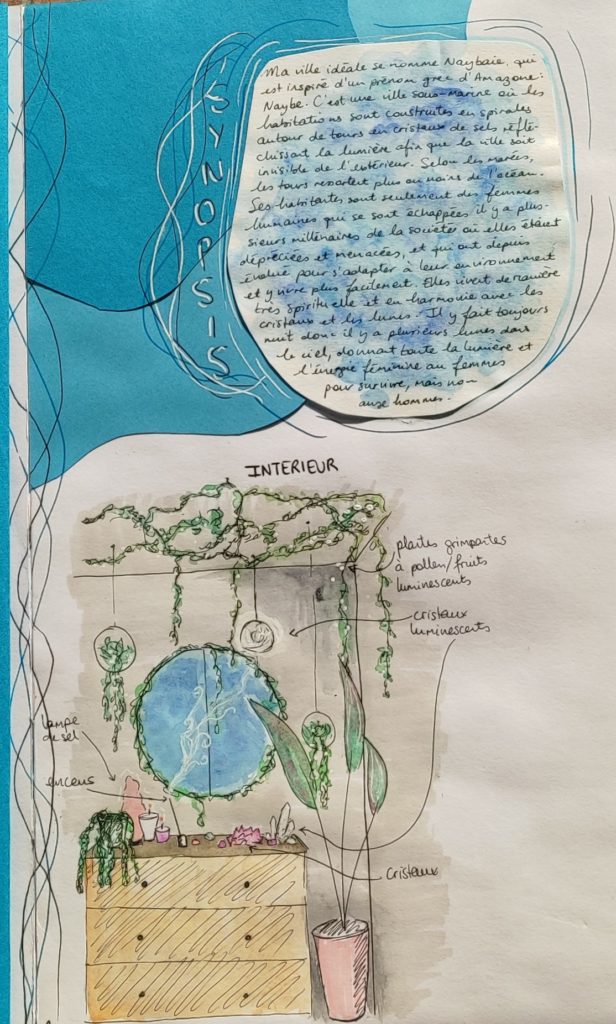 SYNOPSIS
Ma ville idéale se nomme Naybaie, qui
est inspiré d'un prénom grec d'Amazone :
Naybe. C'est une ville sous-marine où les
habitations sont construites en spirales
autour de tours en cristaux de sels réflé-
chissant la lumière afin que la ville soit
invisible de l'extérieur. Selon les marées,
les tours ressortent plus ou moins de l'océan.
Ses habitantes sont seulement des femmes
humaines qui se sont échappées il y a plu-
sieurs millénaires de la société où elles étaient
dépréciées et menacées, et qui ont depuis
évolué pour s'adapter à leur environnement
et y vivre plus facilement. Elles vivent de manière
très spirituelle et en harmonie avec les
cristaux et les lunes. Il y fait toujours
nuit donc il y a plusieurs lunes dans
le ciel, donnant toute la lumière et
l'énergie féminine au femmes
pour survivre, mais non
aux hommes.
INTERIEUR
plantes grimpantes
à pollen/fruits
luminescents
cristaux
luminescents
lampe
de sel
encens
cristaux